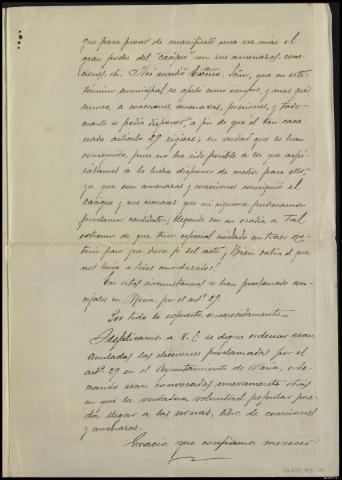 que para poner de manifiesto una vez mas el
gran poder del "cacique" con sus amenazas, coac-
ciones, etc. Asi sucedió Excmo. Señor, que en este
término municipal se apeló como siempre, y mas que
nunca a coacciones, amenazas, presiones, y todo
cuanto se podia disponer, a fin de que el tan caca
reado artículo 29 rigiera; en verdad que lo han
conseguido, pues no ha sido posible a los que aspi-
rábamos a la lucha disponer de medio para ello,
ya que con amenazas y coacciones consiguió el
cacique y sus secuaces que ni siquiera pudieramos
proclamar candidato; llegando en su osadia a tal
extremo de que tuvo especial cuidado en traer no-
tario para que diera fé del acto; ¡Bien sabia él que
nos tenia a todos amordazados!
En estas circunstancias se han proclamado con-
cejales en por el artº 29.
Por todo lo expuesto, encarecidamente
Suplicamos a V. E. se digne ordenar sean
anuladas las elecciones proclamadas por el
artº 29 en el Ayuntamiento de orde-
nando sean convocadas nuevamente otras
en que la verdadera voluntad popular pue-
da llegar a las urnas, libre de coacciones
y amenazas.
Gracia que confiamos merecer